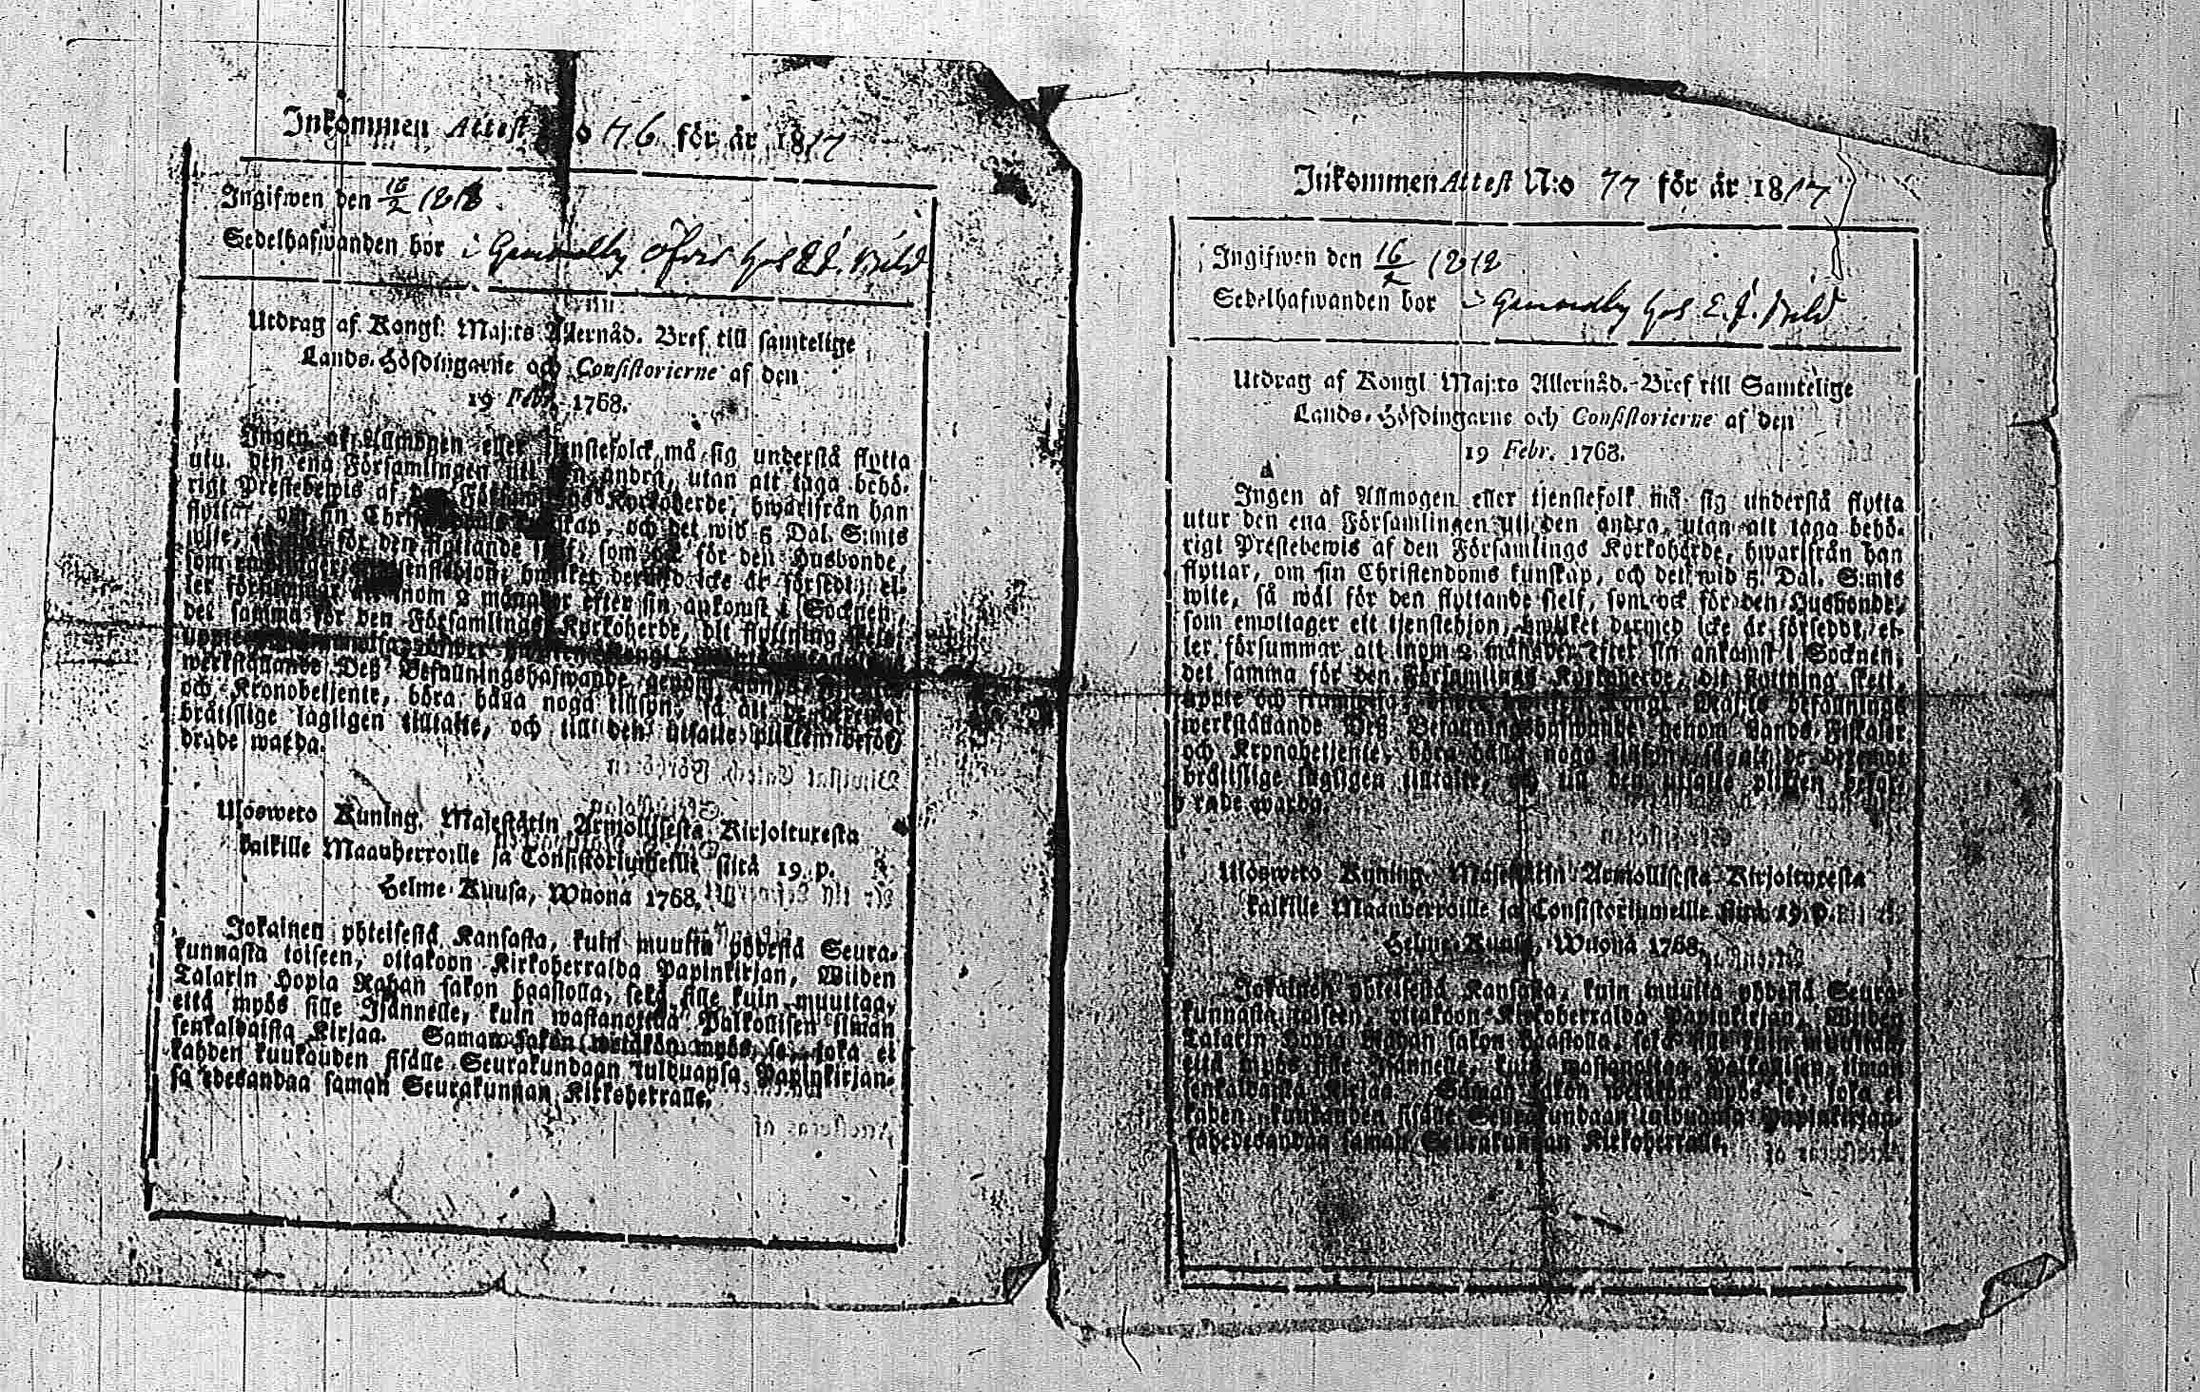 Inkommen Attest No 76 för år 1817
Ingifwen den 16/2 1818
Sedelhafwanden bor i Gunnardby hos E. J. Wild
Utdrag af Kongl. Maj:ts Allernåd. Bref till samtelige
Lands-Höfdingarne och Consistorierne af den
19 Febr. 1768.
Ingen af Allmogen eller tjenstefolck må sig understå flytta
utu. den ena Församlingen till den andra, utan att taga behö-
rigt Prestebewis af den Församlings Kyrkoherde, hwarifrån han
flyttar, om sin Christendoms kunskap, och det wid 5 Dal. S:mts
wite, så wäl för den flyttande sielf, som ock för den Husbonde,
som emottager ett tjenstehjon, hwilket dermed icke är försedt, el-
ler försummar att inom 2 månader efter sin ankomst i Socknen,
det samma för den Församlings Kyrkoherde, dit flyttning skett,
werkställande Deß Befallningshafwande genom
och Kronobetjente, böra hålla noga tillsyn, så att de deremot
brottslige lagligen tilltalte, och till den utsatte plikten beför-
drade warda.
Ulosweto Kuning. Majestätin Armollisesta Kirjoituresta
kaikille Maanherroille ja Consistoriumeille siitä 19. p.
Helme-Kuusa, Wuona 1768.
Jokainen yhteisestä Kansasta, kuin muutta yhdestä Seura-
kunnasta toiseen, ottakoon Kirkoherralda Papinkirjan, Wiiden
Talarin Hopia Rahan sakon haastolla, sekä sille kuin muuttaa,
että myös sille Isännelle, kuin wastanottaa Palkollisen ilman
senkaldaista Kirjaa. Saman sakon wetäkön myös se, joka ei
kahden kuukauden sisälle Seurakundaan tulduansa, Papinkirjan-
sa edesandaa saman Seurakunnan Kirkoherralle.
Inkommen Attest N:o 77 för år 1817
Ingifwen den 16/2 1818
Sedelhafwanden bor i Gunnardby hos E. J. Wild
Utdrag af Kongl Maj:ts Allernåd. Bref till Samtelige
Lands-Höfdingarne och Consistorierne af den
19 Febr. 1768.
Ingen af Allmogen eller tjenstefolk må sig understå flytta
utur den ena Församlingen till den andra, utan att taga behö-
rigt Prestebewis af den Församlings Kyrkoherde, hwarifrån han
flyttar, om sin Christendoms kunskap, och det wid 5. Dal. S:mts
wite, så wäl för den flyttande sielf, som ock för den Husbonde,
som emottager ett tjenstehjon, hwilket dermed icke är försedt, el-
ler försummar att inom 2 månader efter sin ankomst i Socknen,
det samma för den Församlings Kyrkoherde, dit flyttning skett,
uppte och framwisa; öfwer hwilken Kongl. Maj:ts befallnings
werkställande Deß Befallningshafwande genom Lands-Fiskaler
och Kronobetjente, böra hålla noga tillsyn, så att de deremot
brottslige lagligen tilltalte, och till den utsatte plikten beför-
drade warda.
Ulosweto Kuning. Majestätin Armollisesta Kirjoituresta
kaikille Maanherroille ja Consistoriumeille siitä 19. p.
Helme-Kuusa, Wuona 1768.
Jokainen yhteisestä Kansasta, kuin muutta yhdestä Seura-
kunnasta toiseen, ottakoon Kirkoherralda Papinkirjan, Wiiden
Talarin Hopia Rahan sakon haastolla, sekä sille kuin muuttaa,
että myös sille Isännelle, kuin wastanottaa Palkollisen ilman
senkaldaista Kirjaa. Saman sakon wetäkön myös se, joka ei
kahden kuukauden sisälle Seurakundaan tulduansa Papinkirjan-
sa edesandaa saman Seurakunnan Kirkoherralle.